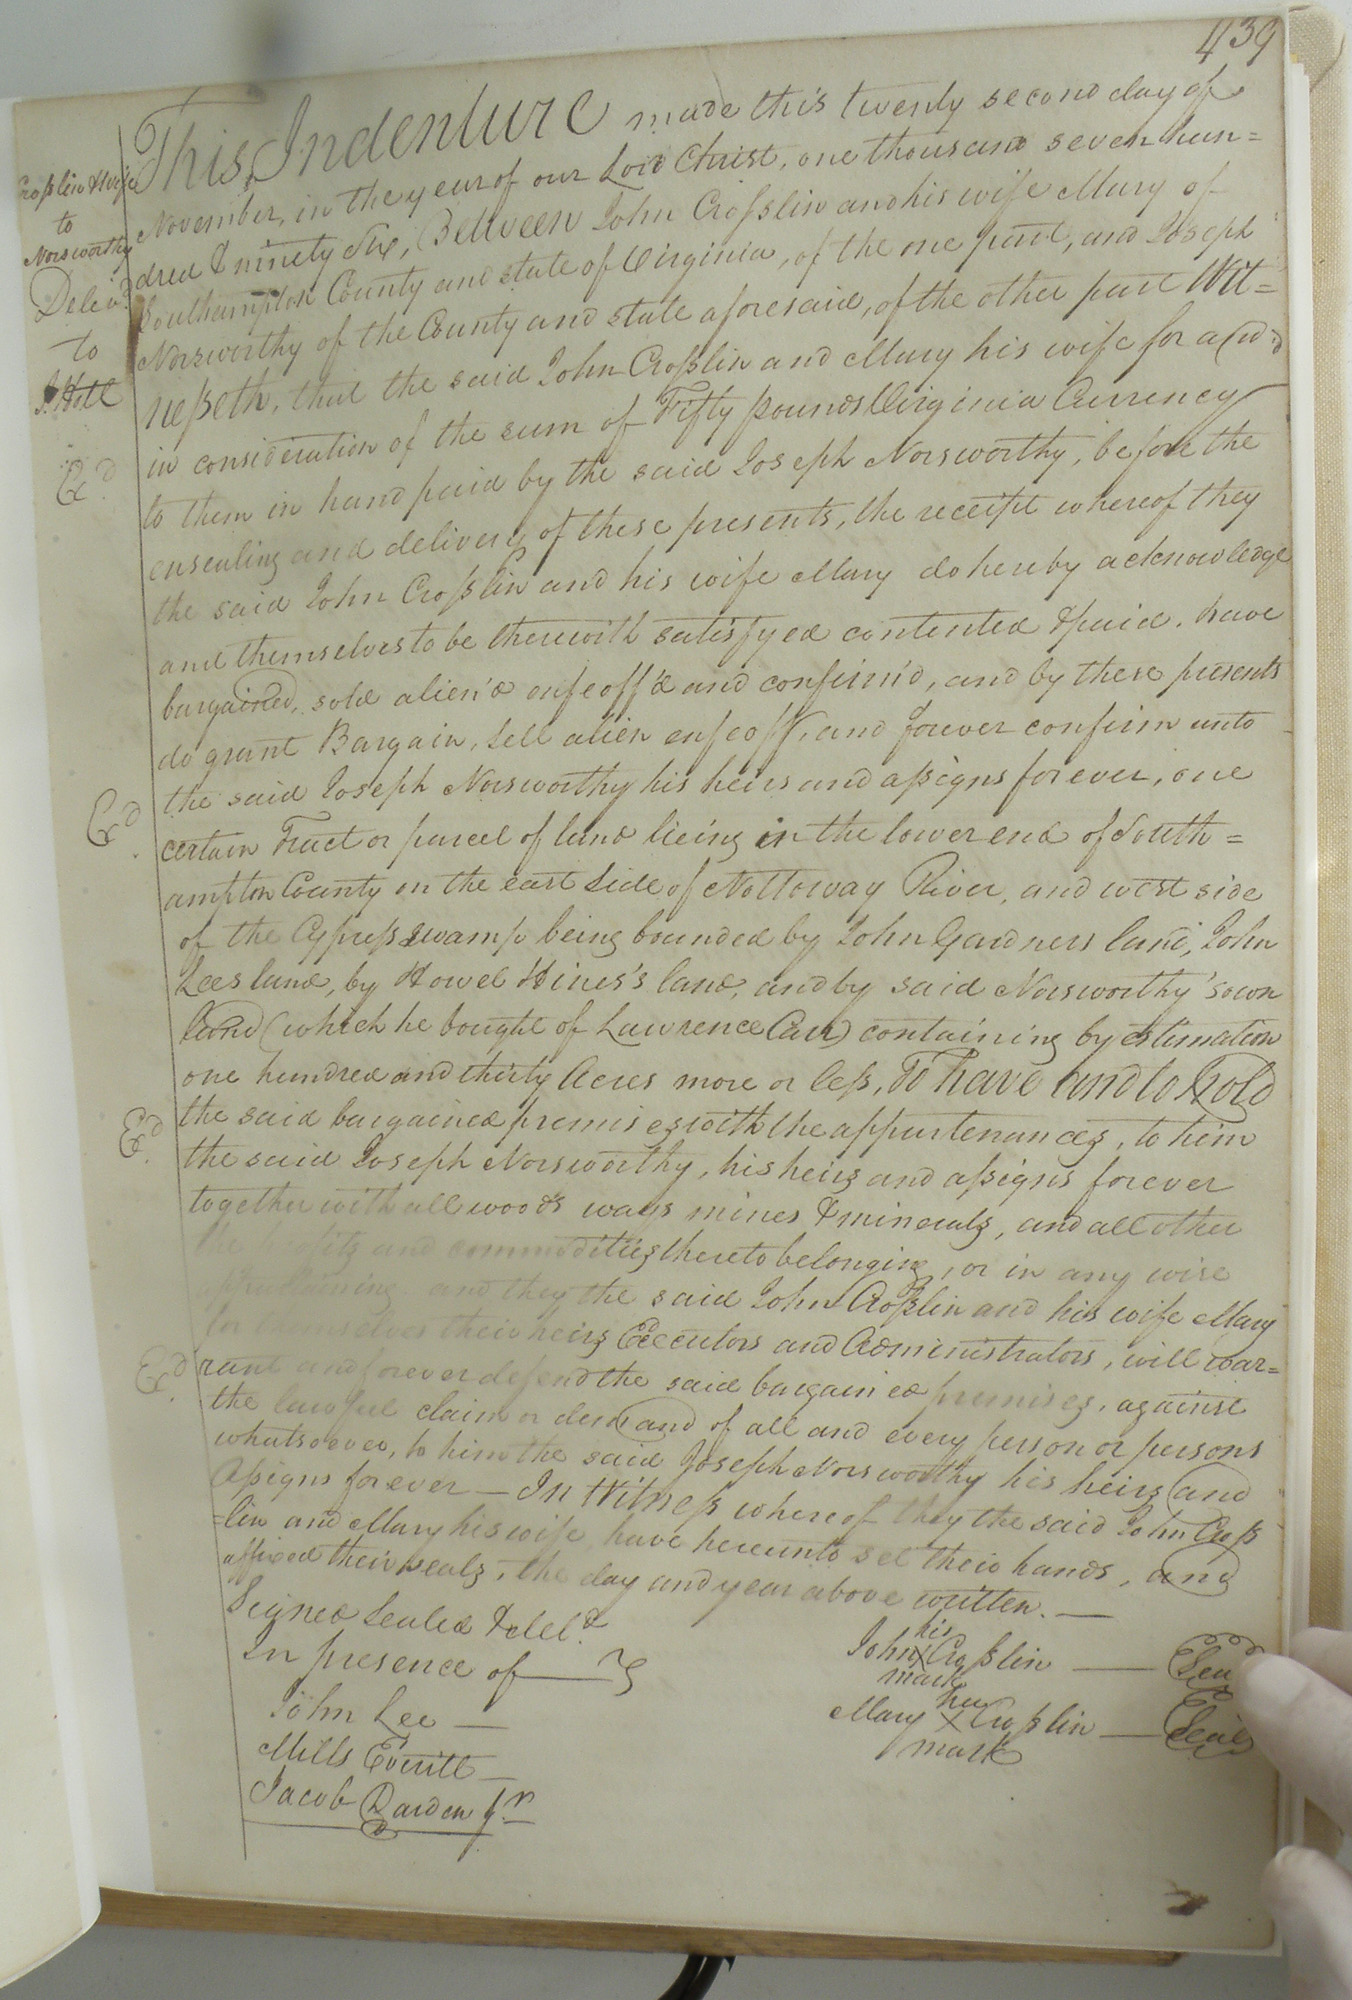 439
This Indenture made this twenty second day of
November, in the year of our Lord Christ, one thousand seven hun=
dred & ninety six, Between John Croſslin and his wife Mary of
Southampton County and state of Virginia, of the one part, and Joseph
Norsworthy of the County and state aforesaid, of the other part Wit=
neſseth, that the said John Croſslin and Mary his wife for and
in consideration of the sum of Fifty pounds Virginia Currency
to them in hand paid by the said Joseph Norsworthy, before the
ensealing and delivery of these presents, the receipt whereof they
the said John Croſslin and his wife Mary do hereby acknowledge
and themselves to be therewith satisfyed contented & paid. have
bargained, sold alien'd enfeoff'd and confirm'd, and by these presents
do grant Bargain, Sell alien enfeoff, and forever confirm unto
the said Joseph Norsworthy his heirs and aſsigns forever, one
certain Tract or parcel of land lieing in the lower end of South=
ampton County on the east Side of Nottoway River, and west side
of the Cypreſs Swamp being bounded by John Gardners land, John
Lees land, by Howel Hines's land, and by said Norsworthy's own
land (which he bought of Lawrence Carr) containing by estimation
one hundred and thirty Acres more or leſs, To have and to hold
the said bargained premises with the appurtenances, to him
the said Joseph Norsworthy, his heirs and aſsigns forever
together with all woods ways mines & minerals, and all other
the and commodities thereto belonging, or in any wise
appertaining and they the said John Croſslin and his wife Mary
for themselves their heirs Executors and Administrators, will war=
rant and forever defend the said bargained premises, against
the lawful claim or demand of all and every person or persons
whatsoever, to him the said Joseph Norsworthy his heirs and
aſsigns forever — In Witneſs whereof they the said John Croſs
=lin and Mary his wife have hereunto set their hands, and
affixed their seals, the day and year above written. —
Signed Sealed & deld
In presence of
John Lee —
Mills Everitt —
Jacob Darden Jr
his
John X Croſslin — Seal
mark
her
Mary X Croſslin — Seal
mark
Croſslin & wife
to
Norsworthy
Delivd
to
J. Holt
Exd
Exd
Exd
Exd